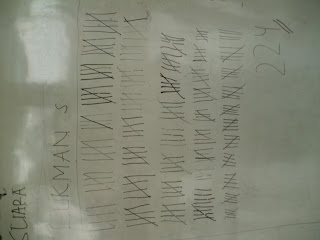 SUARA
LUKMAN S
224